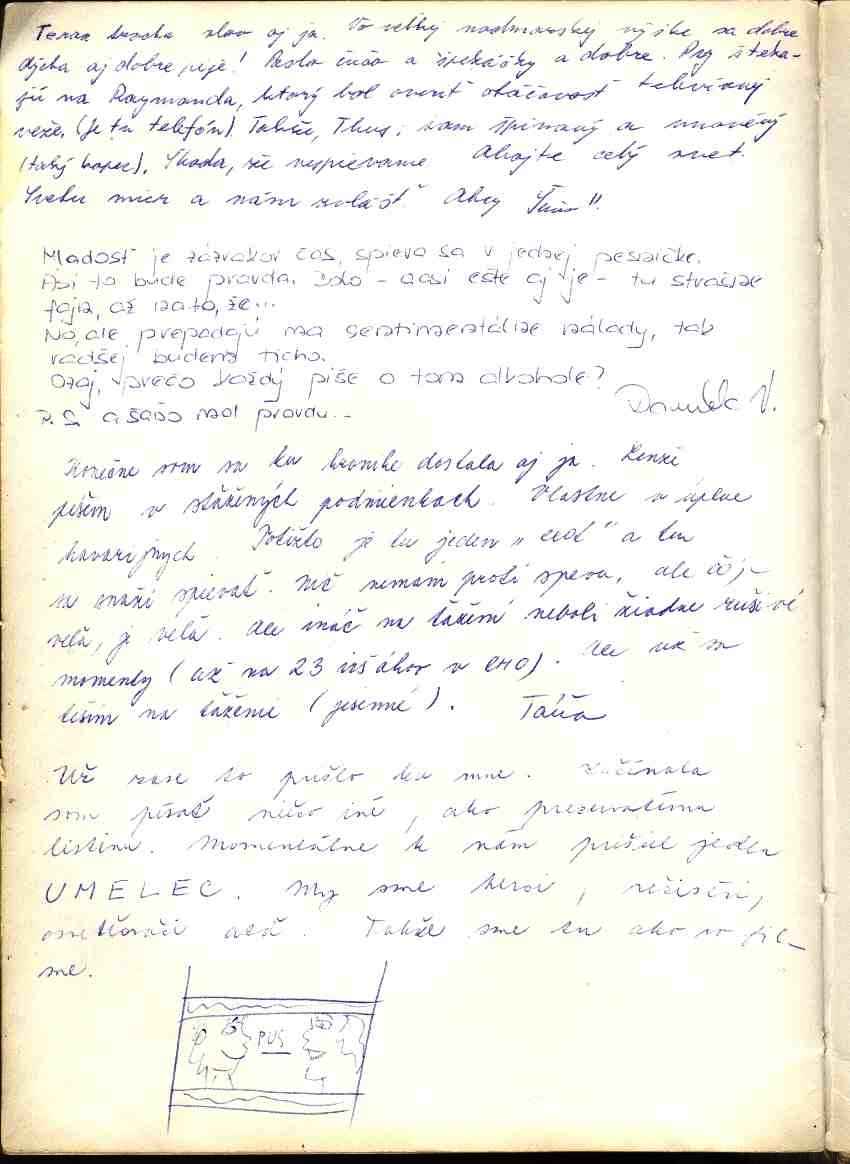 Teraz trocha slov aj ja. Vo veľkej nadmorskej výške sa dobre
dýcha aj dobre pije! Paslo čučo a špekáčky a dobre. Psy šteka-
jú na Raymonda, ktorý bol overiť otáčavosť televíznej
veže. (Je tu telefón). Takže, Thus; som špinavý a unavený
(taký kopec). Škoda, že nespievame Ahojte celý svet.
Svetu mier a nám zvlášť Ahoj
Mladosť je zázrakov čas, spieva sa v jednej pesničke.
Asi to bude pravda. Bolo - aasi ešte aj je - tu strašne
fajn, až na to, že...
No, ale prepadajú ma sentimentálne nálady, tak
radšej budem ticho.
Ozaj, prečo každý píše o tom alkohole?
P.S. a Šaňo mal pravdu... V.
Konečne som sa ku kronike dostala aj ja. Lenže
píšem v stážených podmienkach. Vlastne v úplne
havarijných. Totižto je tu jeden „cvoť" a ten
sa snaží spievať. Nič nemám proti spevu, ale čo j-
veľa, je veľa. Ale ináč na tážení neboli žiadne rušivé
momenty (až na 23 v ). Ale už sa
teším na táženie (jesenné). Táňa
Už zase to prišlo ku mne. Začínala
som písať niečo iné, ako prezenčnú
listinu. Momentálne k nám prišiel jeden
UMELEC. My sme herci, režiséri,
osvetľovači atď. Takže sme tu ako vo fil-
me.
PUS